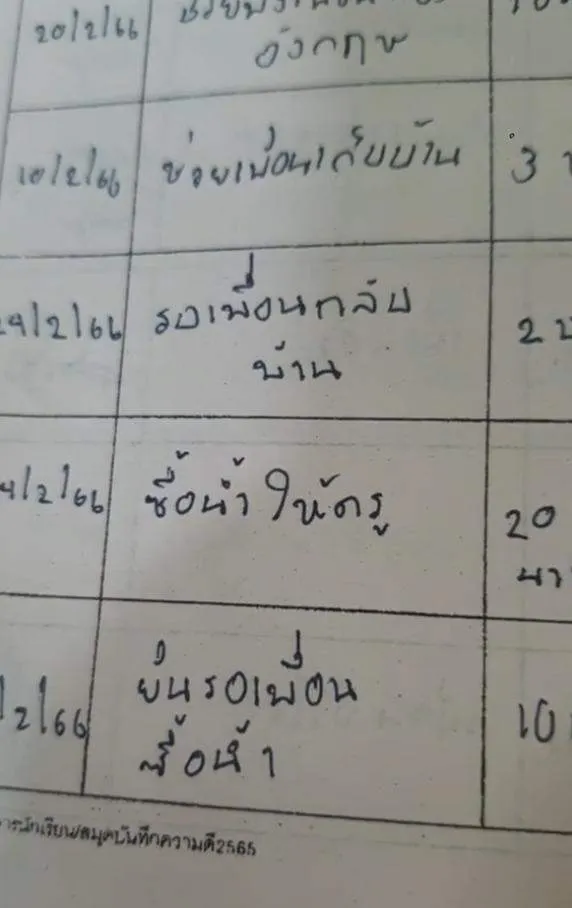 20/2/66
อังกฤษ
10/2/66 ช่วยเพื่อนเก็บบ้าน 3
/2/66 รอเพื่อนกลับ 2
บ้าน
/2/66 ซื้อน้ำให้ครู 20
นา
/2/66 ยืนรอเพื่อน 10
ซื้อน้ำ
ารนักเรียน/สมุดบันทึกความดี2565